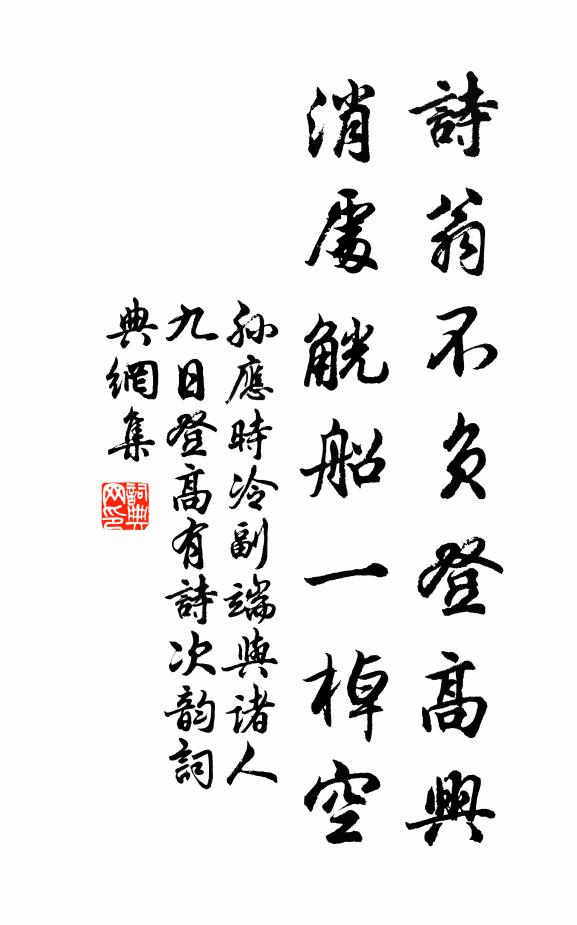 詩翁不負登高興
消處觥船一棹空
孫應時冷副端與諸人
九日登高有詩次韵詞
典網集
詞典网印